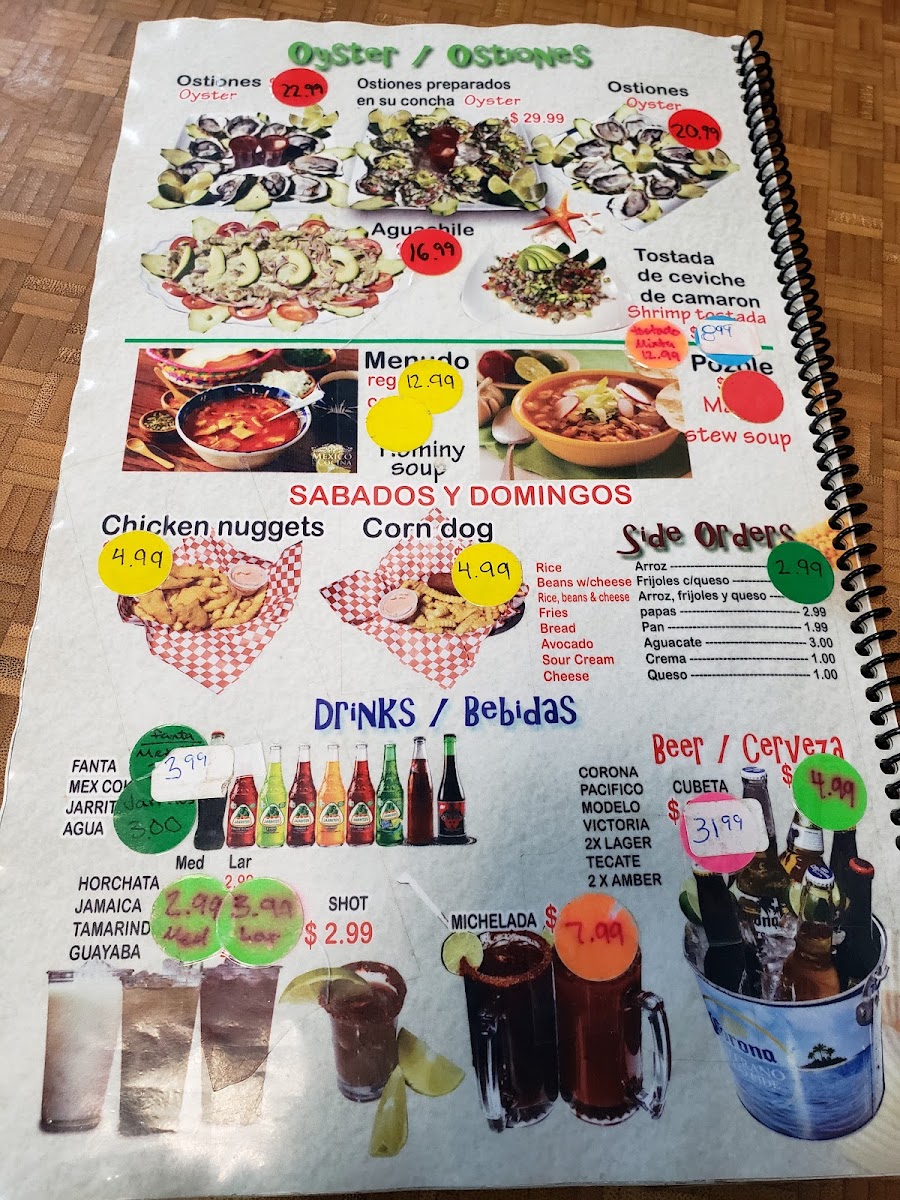 Oyster / Ostiones
Ostiones
Oyster
22.99
Ostiones preparados
en su concha Oyster
$ 29.99
Ostiones
Oyster
20.99
Aguachile
16.99
Tostada
de ceviche
de camaron
Shrimp tostada
$ 8.99
tostada
Mixta
12.99
Menudo
reg
12.99
Hominy
soup
MEXICO
COCINA
Pozole
$
stew soup
SABADOS Y DOMINGOS
Chicken nuggets
4.99
Corn dog
4.99
Side Orders
Rice Arroz
Beans w/cheese Frijoles c/queso
2.99
Rice, beans & cheese Arroz, frijoles y queso
Fries papas 2.99
Bread Pan 1.99
Avocado Aguacate 3.00
Sour Cream Crema 1.00
Cheese Queso 1.00
Drinks / Bebidas
FANTA
MEX CO
JARRIT
AGUA
fanta
3.99
3.00
Beer / Cerveza
$ 4.99
CORONA
PACIFICO
MODELO
VICTORIA
2X LAGER
TECATE
2 X AMBER
CUBETA
$ 31.99
Med Lar
2.99
HORCHATA
JAMAICA
TAMARIND
GUAYABA
2.99
Med
3.99
Lar
SHOT
$ 2.99
MICHELADA $
7.99
Corona